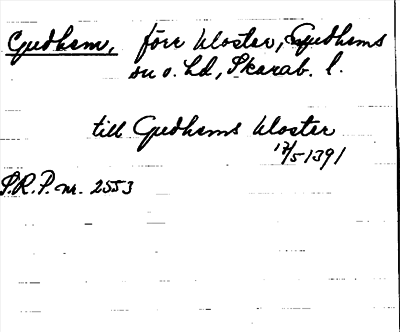 Gudhem, förr kloster, Gudhems
sn o. hd, Skarab. l.
till Gudhems kloster
17/5 1391
S.R.P. nr. 2553